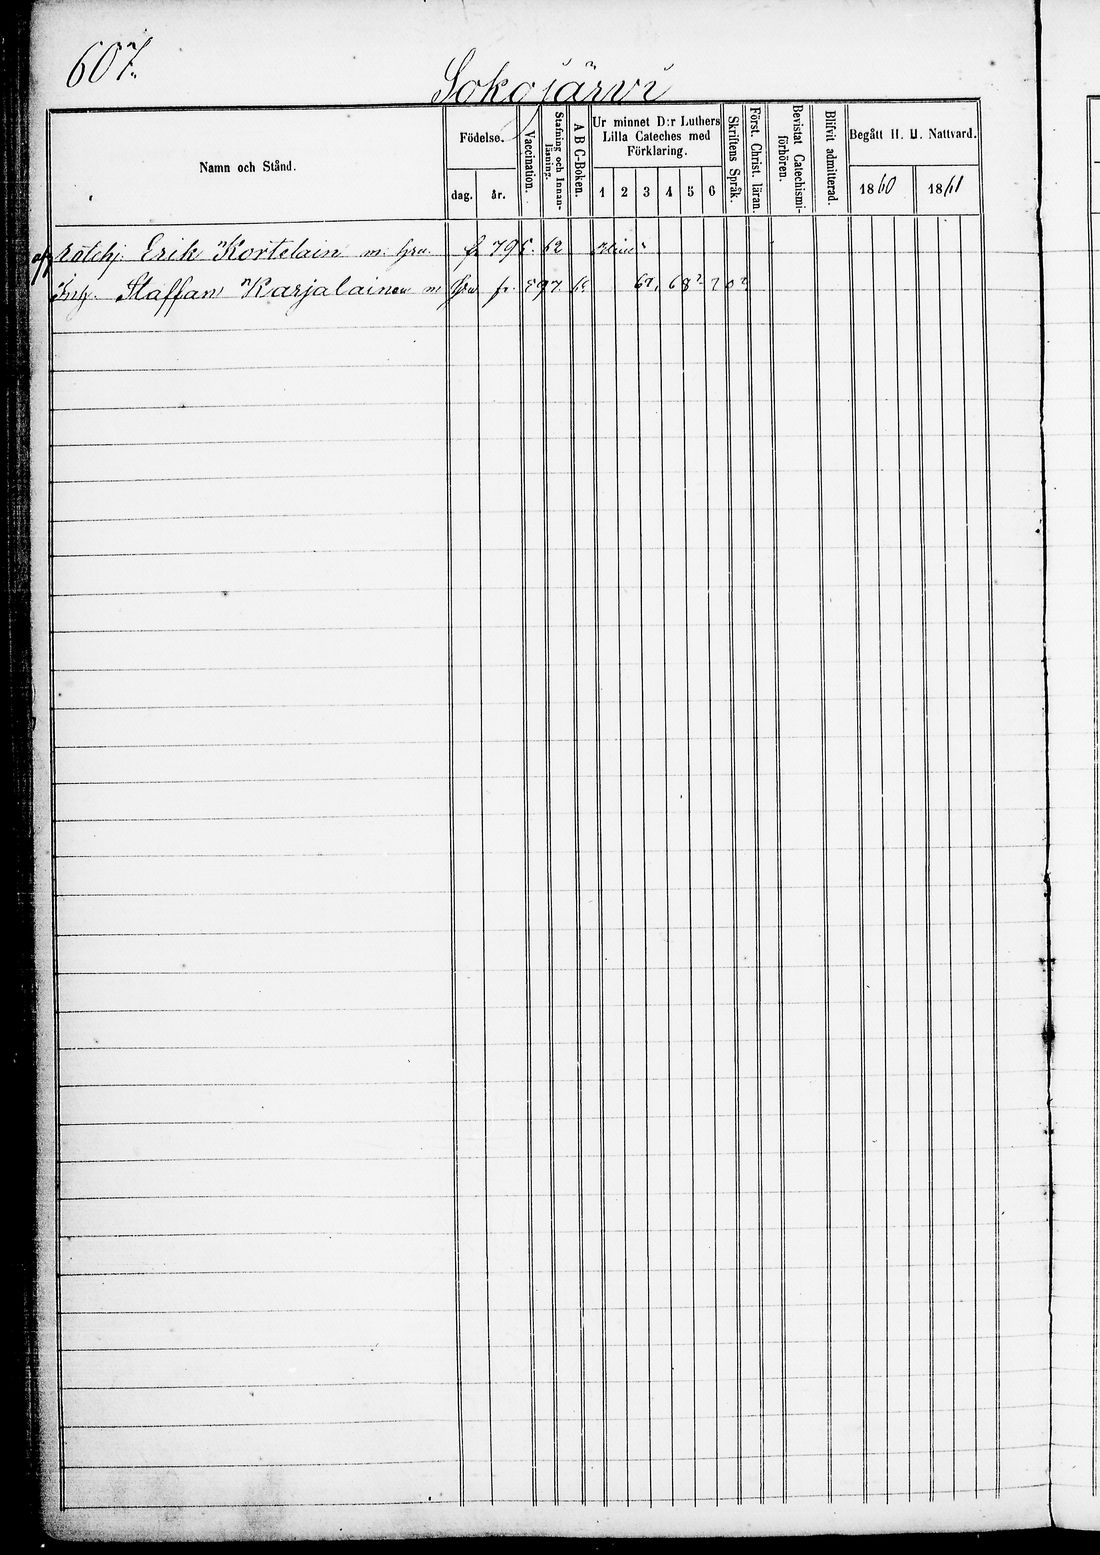 607.
Sokojärvi
Namn och Stånd.
Födelse.
dag. år.
Vaccination.
Stafning och Innanläsning.
A B C-Boken.
Ur minnet D:r Luthers
Lilla Cateches med
Förklaring.
1 2 3 4 5 6
Skriftens Språk.
Först. Christ. läran.
Bevistat Catechismiförhören.
Blifvit admitterad.
Begått H. H. Nattvard.
1860 1861
Erik Kortelain m. fr 795. 62
Inh. Staffan Karjalainen m fr. 597 67, 68